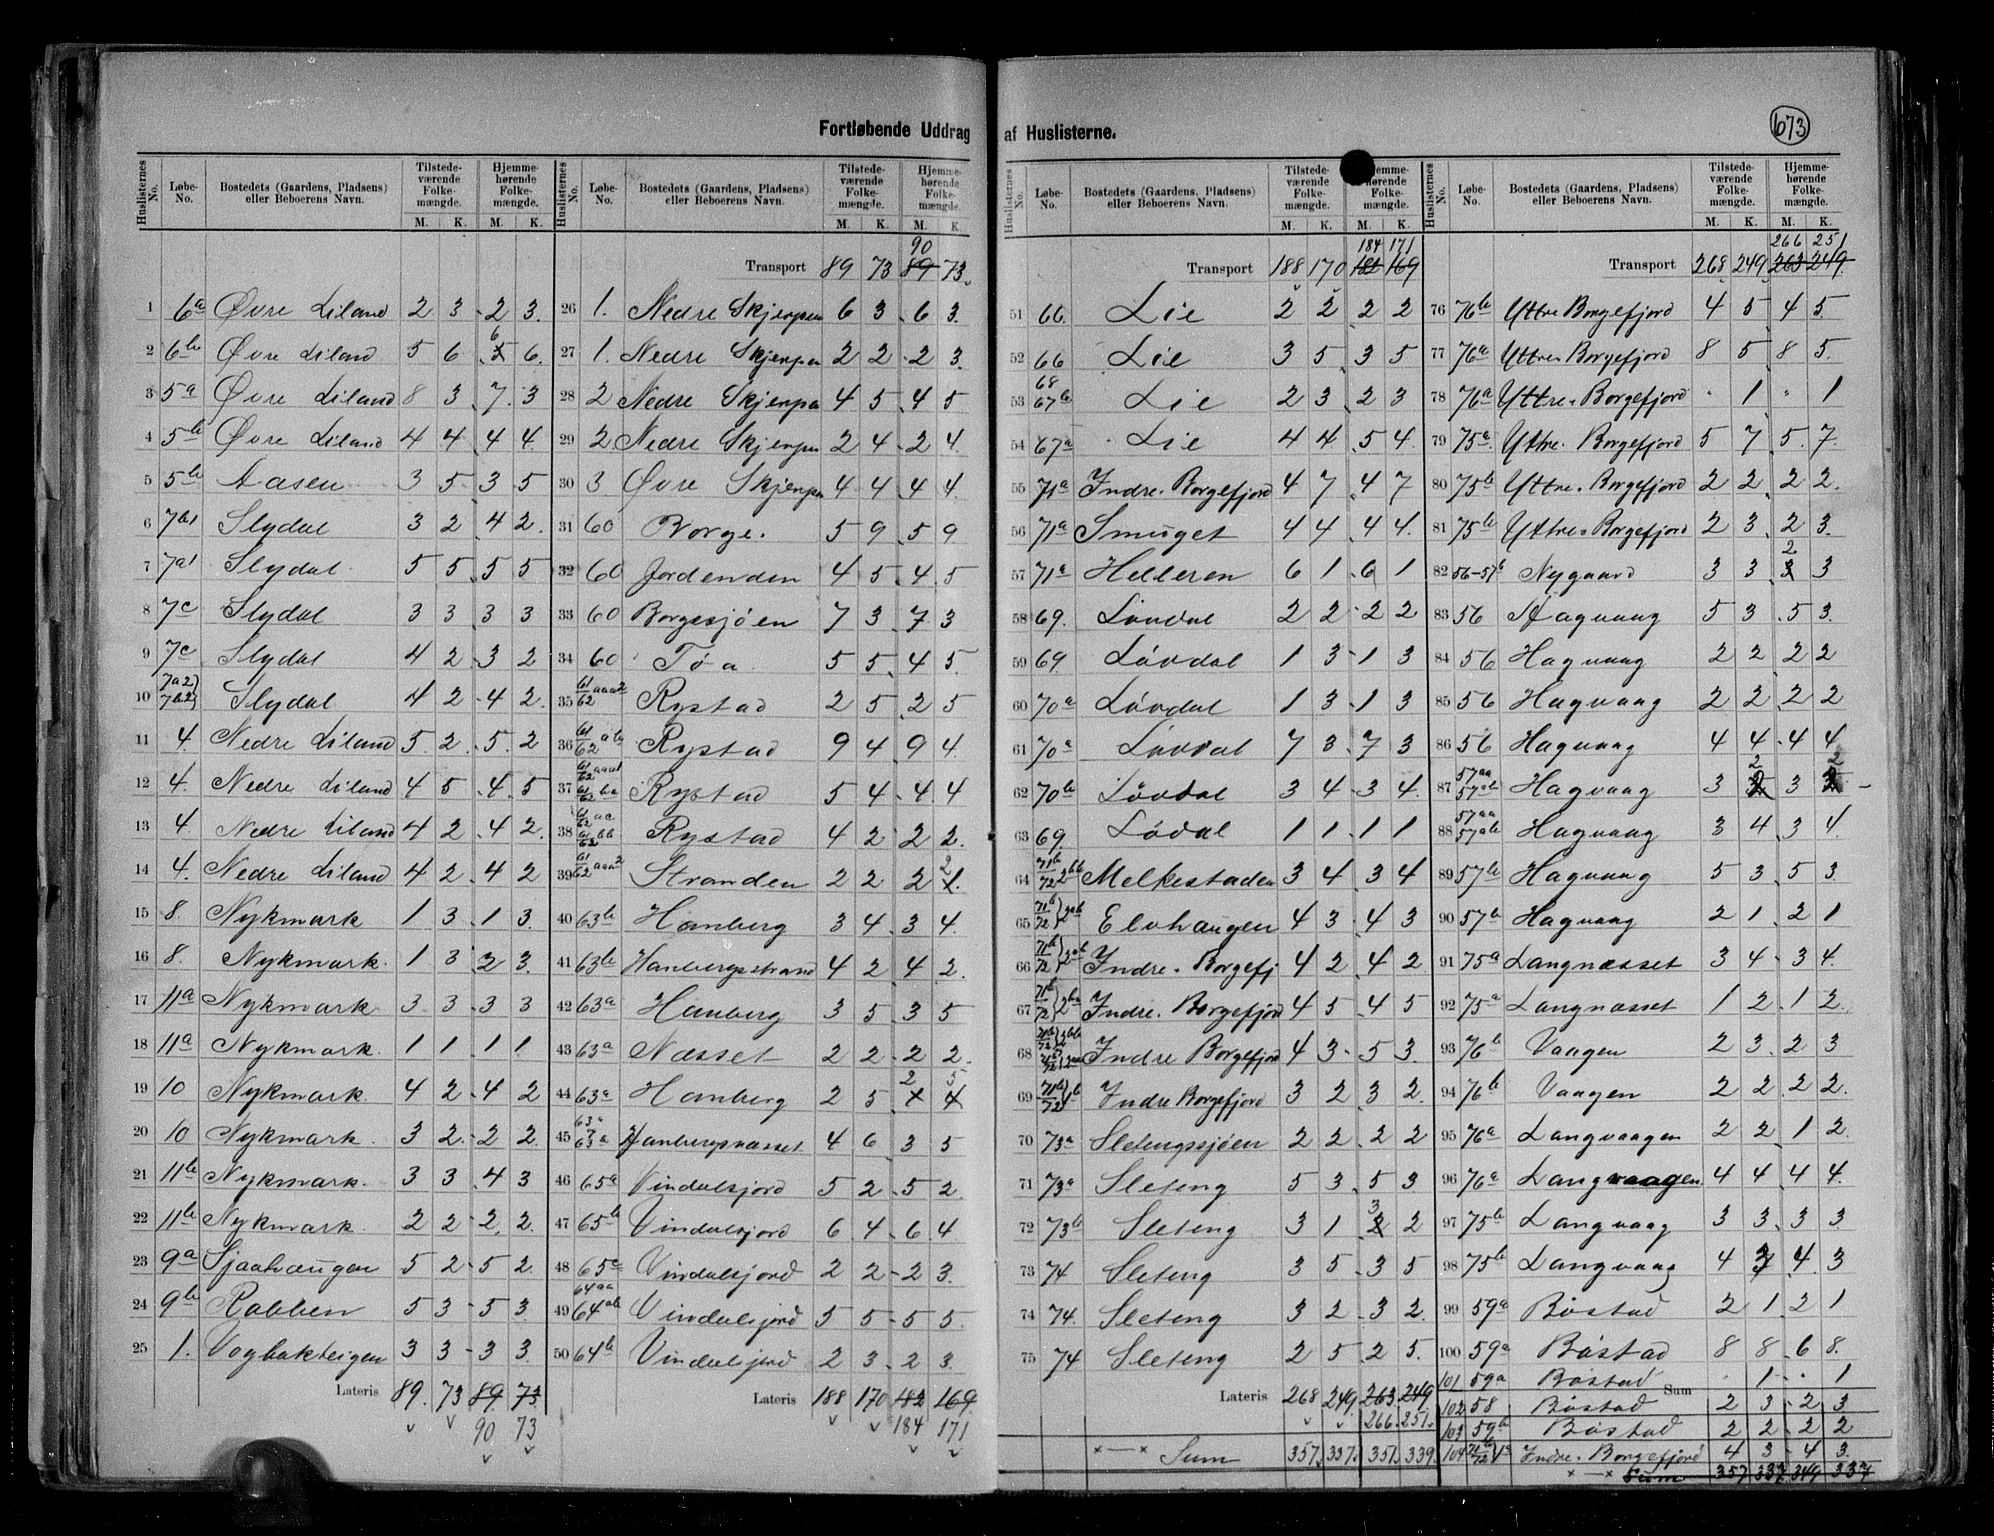 Fortløbende Uddrag af Huslisterne.
673
Huslisternes No. Løbe-No. Bostedets (Gaardens, Pladsens) eller Beboerens Navn. Tilstedeværende Folkemængde. M. K. Hjemmehørende Folkemængde. M. K.
1 6a Øvre Liland 2 3 2 3
2 6b Øvre Liland 5 6 6 6
3 5a Øvre Liland 8 3 7 3
4 5b Øvre Liland 4 4 4 4
5 5b Aasen 3 5 3 5
6 7b1 Slydal 3 2 4 2
7 7a1 Slydal 5 5 5 5
8 7c Slydal 3 3 3 3
9 7c Slydal 4 2 3 2
10 7a2) 7b2) Slydal 4 2 4 2
11 4. Nedre Liland 5 2 5 2
12 4. Nedre Liland 4 5 4 5
13 4. Nedre Liland 4 2 4 2
14 4. Nedre Liland 4 2 4 2
15 8. Nykmark 1 3 1 3
16 8. Nykmark 1 3 2 3
17 11a Nykmark 3 3 3 3
18 11a Nykmark 1 1 1 1
19 10 Nykmark 4 2 4 2
20 10 Nykmark 3 2 2 2
21 11b Nykmark 3 3 4 3
22 11b Nykmark 2 2 2 2
23 9a Sjaahaugen 5 2 5 2
24 9b Rabben 5 3 5 3
25 1. Vogbakteigen 3 3 3 3
Lateris 89. 73 89. 73
90 73
Huslisternes No. Løbe-No. Bostedets (Gaardens, Pladsens) eller Beboerens Navn. Tilstedeværende Folkemængde. M. K. Hjemmehørende Folkemængde. M. K.
90
Transport 89 73 89 73
26 1. Nedre Skjerpen 6 3 6 3
27 1. Nedre Skjerpen 2 2 2 3
28 2 Nedre Skjerpen 4 5 4 5
29 2 Nedre Skjerpen 2 4 2 4
30 3 Øvre Skjerpen 4 4 4 4
31 60 Borge. 5 9 5 9
32 60 Jordenden 4 5 4 5
33 60 Borgesjøen 7 3 7 3
34 60 Tøa 5 5 4 5
35 61/62 aaa2 Rystad 2 5 2 5
36 61/62 ab Rystad 9 4 9 4
37 61/62 aaa1 61/62 ba Rystad 5 4 4 4
38 61/62 ac 61/62 bb Rystad 4 2 2 2
39 61/62 aaa2 Stranden 2 2 2 2
40 63b Hamberg 3 4 3 4
41 63b Hambergsstrand 4 2 4 2
42 63a Hamberg 3 5 3 5
43 63a Næsset 2 2 2 2
44 63a Hamberg 2 5 2 5
45 63a 63a Hambergsnæsset 4 6 3 5
46 65a Vindalsjord 5 2 5 2
47 65b Vindalsjord 6 4 6 4
48 65a Vindalsjord 2 2 2 3
49 64aa 64ab Vindalsjord 5 5 5 5
50 64b Vindalsjord 2 3 2 3
Lateris 188 170 182 169
184 171
Huslisternes No. Løbe-No. Bostedets (Gaardens, Pladsens) eller Beboerens Navn. Tilstedeværende Folkemængde. M. K. Hjemmehørende Folkemængde. M. K.
184 171
Transport 188 170 182 169
51 66. Lie 2 2 2 2
52 66 Lie 3 5 3 5
53 68 67b Lie 2 3 2 3
54 67a Lie 4 4 5 4
55 71a Indre. Borgefjord 4 7 4 7
56 71a Smuget 4 4 4 4
57 71a Helleren 6 1 6 1
58 69. Løvdal 2 2 2 2
59 69. Løvdal 1 3 1 3
60 70a Løvdal 1 3 1 3
61 70a Løvdal 7 3 7 3
62 70b Løvdal 3 4 3 4
63 69. Lødal 1 1 1 1
64 71b/72 2bb Melkestaden 3 4 3 4
65 71b/72 2ab Elvhaugen 4 3 4 3
66 71b/72 2ab Indre. Borgefj 4 2 4 2
67 71b/72 2ba Indre. Borgefjord 4 5 4 5
68 71b/72 2bb Indre Borgefjord 4 3 5 3
69 71b/72 1b Indre Borgefjord 3 2 3 2
70 73a Sletengssjøen 2 2 2 2
71 73a Sleteng 5 3 5 3
72 73b Sleteng 3 1 3 2
73 74 Sleteng 3 5 3 5
74 74. Sleteng 3 2 3 2
75 74 Sleteng 2 5 2 5
Lateris 268 249 263 249
266 251
Sum 357 337 351 339
Huslisternes No. Løbe-No. Bostedets (Gaardens, Pladsens) eller Beboerens Navn. Tilstedeværende Folkemængde. M. K. Hjemmehørende Folkemængde. M. K.
266 251
Transport 268 249 263 249
76 76b Yttre Borgefjord 4 5 4 5
77 76a Yttre Borgefjord 8 5 8 5
78 76a Yttre. Borgefjord " 1 " 1
79 75a Yttre. Borgefjord 5 7 5 7
80 75b Yttre. Borgefjord 2 2 2 2
81 75b Yttre. Borgefjord 2 3 2 3
82 56-57b Nygaard 3 3 2 3
83 56 Hagvaag 5 3 5 3
84 56 Hagvaag 2 2 2 2
85 56 Hagvaag 2 2 2 2
86 56 Hagvaag 4 4 4 4
87 57aa 57ab Hagvaag 3 2 3 2
88 57aa 57ab Hagvaag 3 4 3 4
89 57b Hagvaag 5 3 5 3
90 57b Hagvaag 2 1 2 1
91 75a Langnæsset 3 4 3 4
92 75a Langnæsset 1 2 1 2
93 76b Vaagen 2 3 2 3
94 76b Vaagen 2 2 2 2
95 76a Langvaagen 2 2 1 2
96 76a Langvaagen 4 4 4 4
97 75b Langvaag 3 3 3 3
98 75b Langvaag 4 3 4 3
99 59a Bøstad 2 1 2 1
100 59a Bøstad 8 8 6 8
101 59a Bøstad Sum " 1 " 1
102 58 Bøstad 2 3 2 3
103 59b Bøstad 2 2 2 2
104 71b/72 Indre. Borgefjord 4 3 4 3
Sum 357 337 349 337